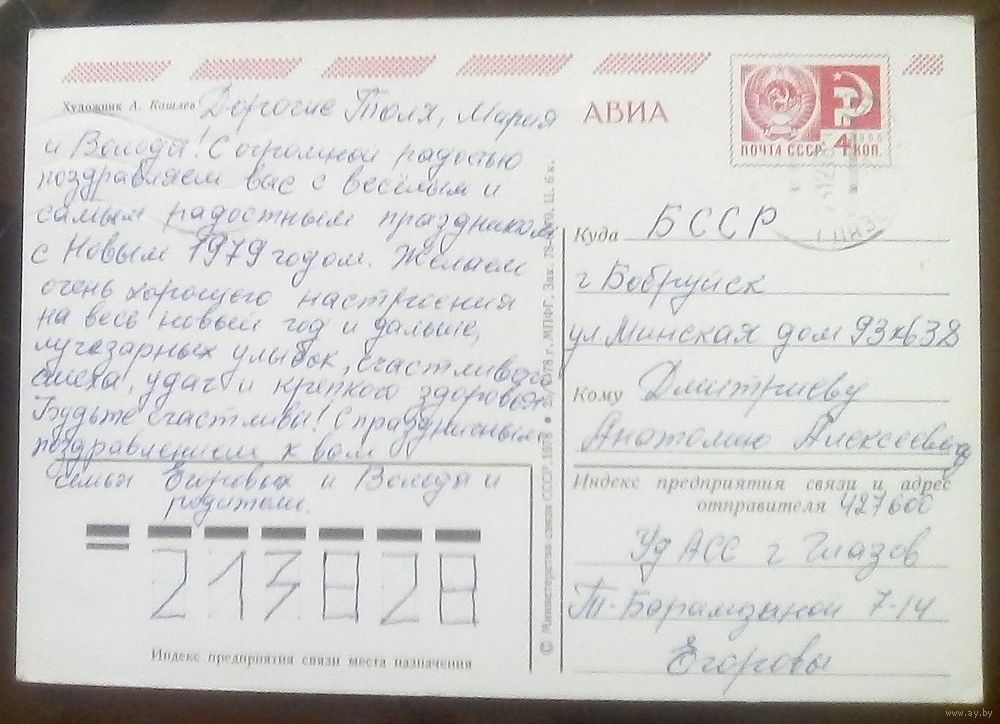 Художник А. Кошлев
Дорогие Толя, Мария
и Володя! С огромной радостью
поздравляем вас с весёлым и
самым радостным праздником
с Новым 1979 годом. Желаем
очень хорошего настроения
на весь новый год и дальше,
лучезарных улыбок, счастливого
смеха, удач и крепкого здоровья
Будьте счастливы! С праздничным
поздравлением к вам
семья Егоровых и Володя и
родители.
213828
Индекс предприятия связи места назначения
© Министерство связи СССР, 1978 г., МПФГ. Зак. 78- Ц. 6 к.
АВИА
ПОЧТА СССР 4 КОП.
1966
Куда БССР
г Бобруйск
ул. Минская дом 93 к 638
Кому Дмитриеву
Анатолию Алексеевичу
Индекс предприятия связи и адрес
отправителя 427600
Уд АСС г Глазов
Т. Барамзиной 7-14
Егоровы
www.ay.by